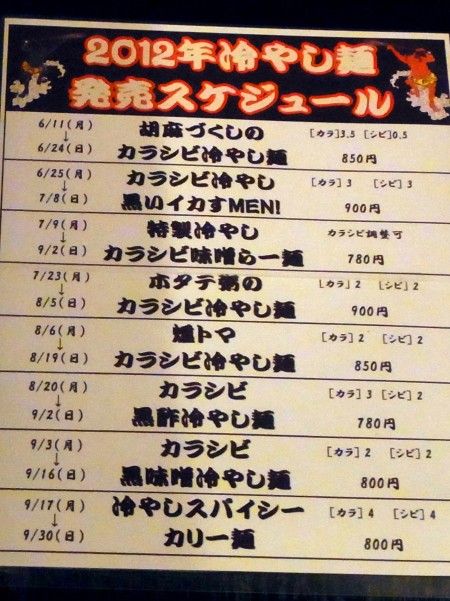 2012年冷やし麺
発売スケジュール
6/11(月) 胡麻づくしの [カラ]3.5 [シビ]0.5
↓
6/24(日) カラシビ冷やし麺 850円
6/25(月) カラシビ冷やし [カラ] 3 [シビ] 3
↓
7/8(日) 黒いイカすMEN! 900円
7/9(月) 特製冷やし カラシビ調整可
↓
9/2(日) カラシビ味噌らー麺 780円
7/23(月) ホタテ粥の [カラ] 2 [シビ] 2
↓
8/5(日) カラシビ冷やし麺 900円
8/6(月) 煙トマ [カラ] 2 [シビ] 2
↓
8/19(日) カラシビ冷やし麺 850円
8/20(月) カラシビ [カラ] 3 [シビ] 2
↓
9/2(日) 黒酢冷やし麺 780円
9/3(月) カラシビ [カラ] 2 [シビ] 2
↓
9/16(日) 黒味噌冷やし麺 800円
9/17(月) 冷やしスパイシー [カラ] 4 [シビ] 4
↓
9/30(日) カリー麺 800円